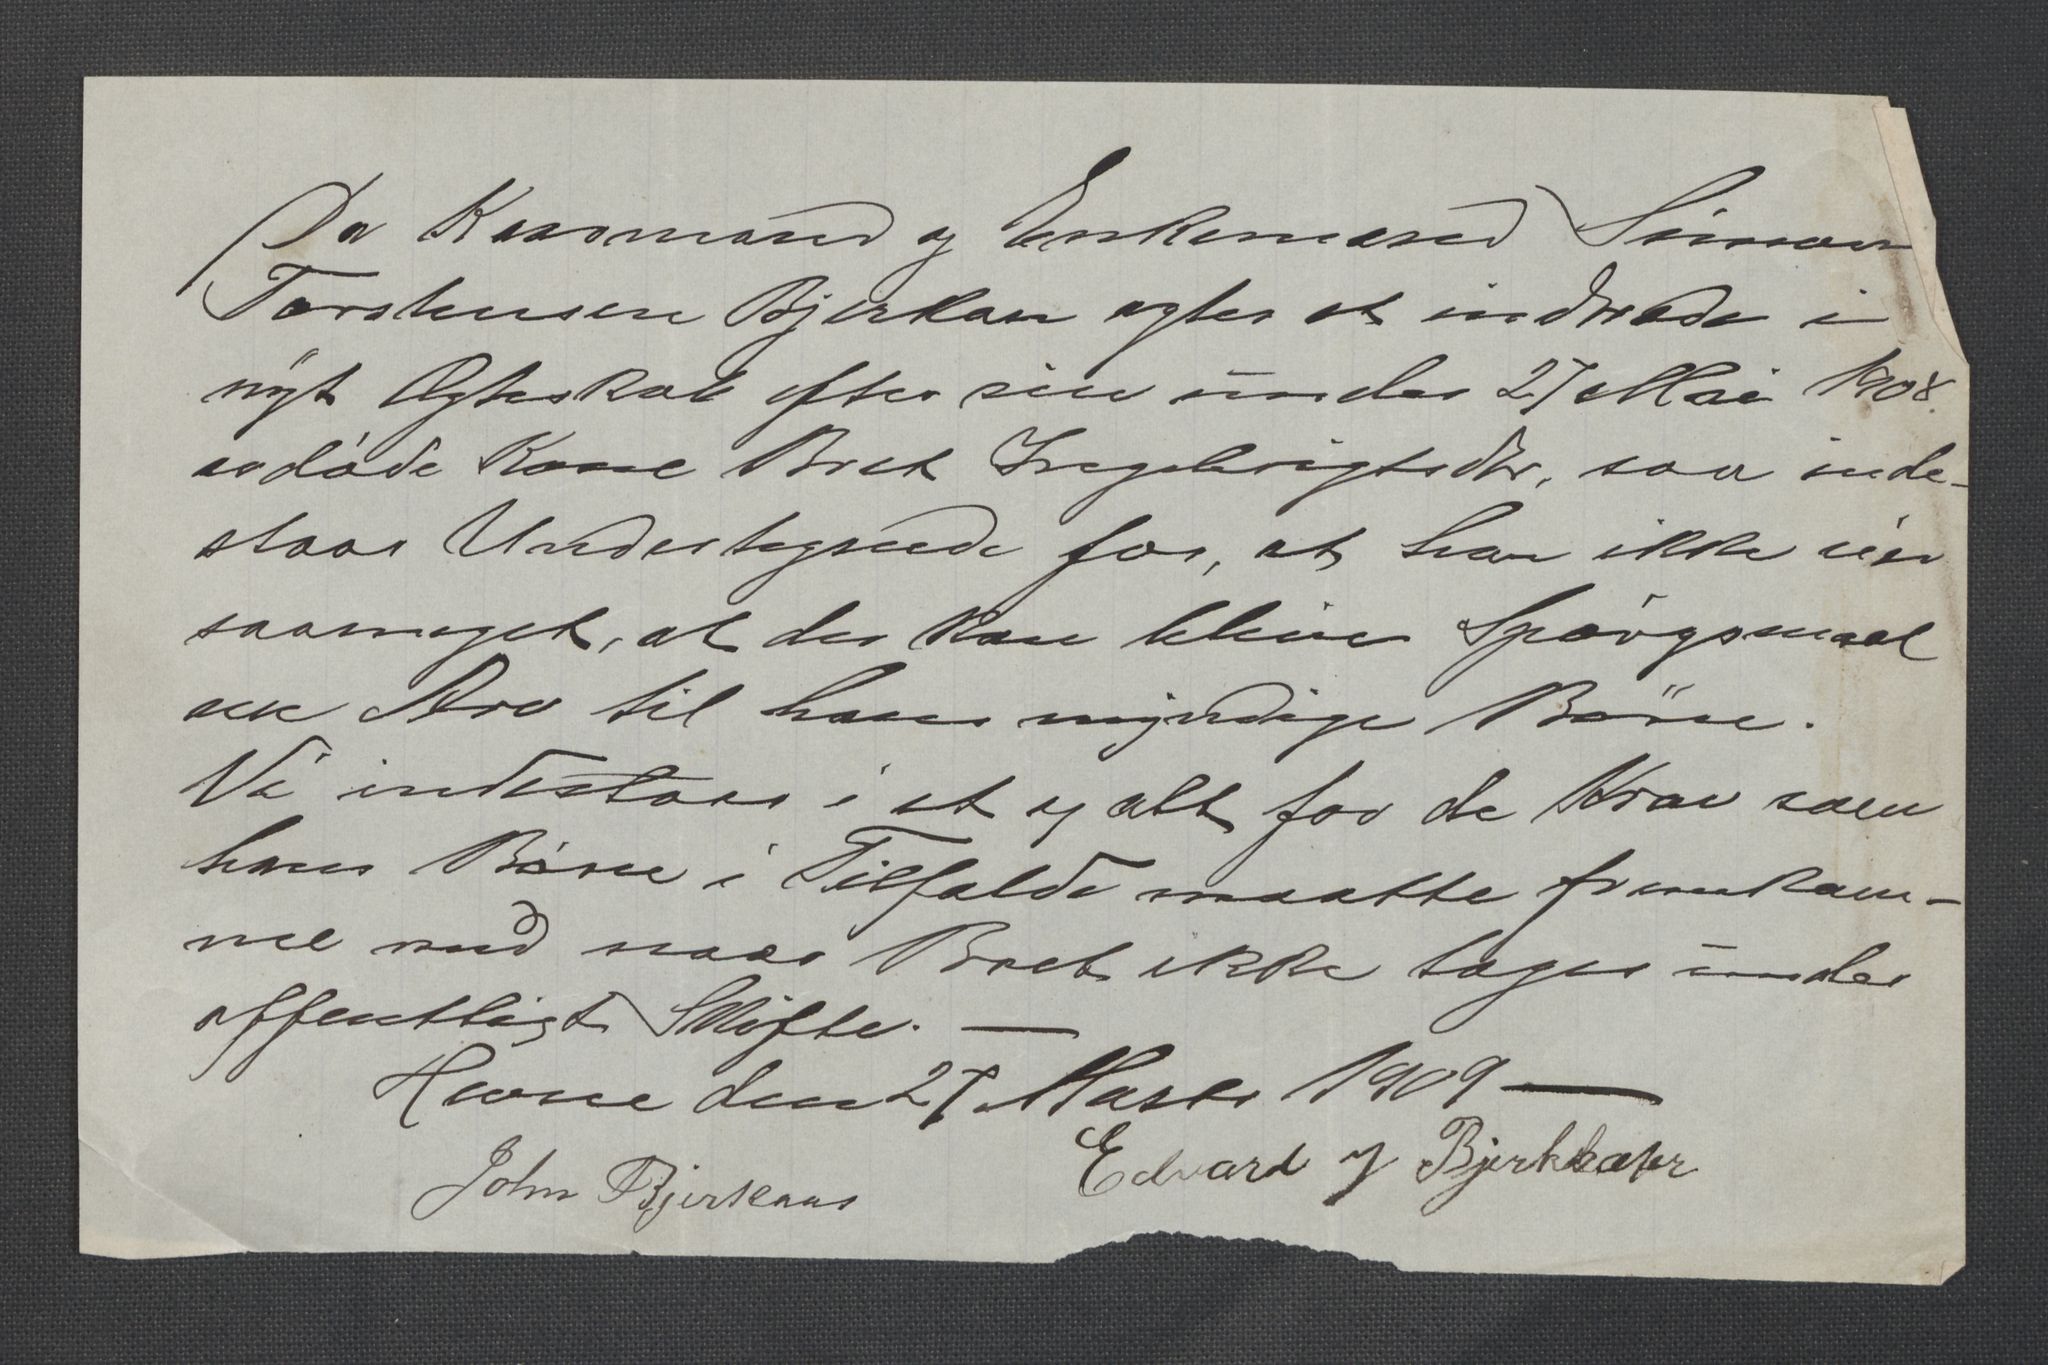 Da Kaarmand og Enkemand Simon
Torstensen Bjerkan agter at indtræde i
nyt Ægteskab efter sin under 27 Mai 1908
afdøde Kone Bret Ingebrigtsdtr, saa inde-
staar Undertegnede for, at han ikke eier
saameget, at der kan blive Spørgsmaal
om Arv til hans myndige Børn.
Vi indestaar i et og alt for de Krav som
hans Børn i Tilfælde maatte fremkom-
me med naar Boet ikke tages under
offentligt Skifte. —
Hevne den 27 Marts 1909 —
John Bjerkaas Edvard J Bjerkkæter